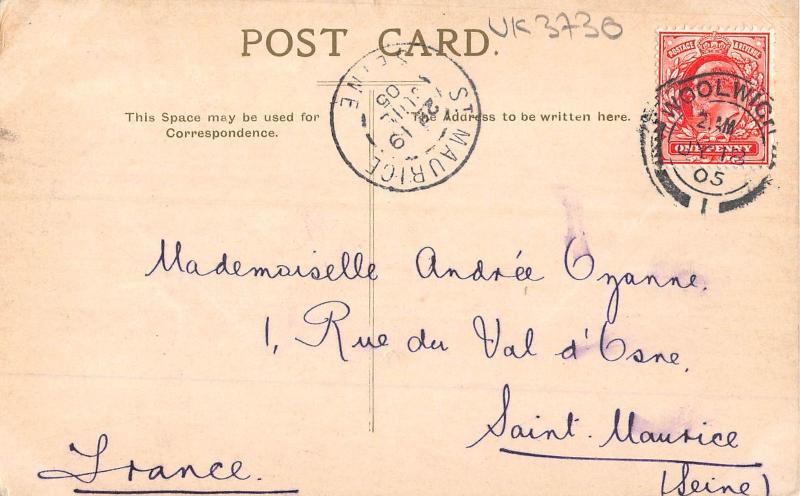 UK3738
POST CARD.
POSTAGE & REVENUE
ONE PENNY
WOOLWICH
JY 18
05
1
ST MAURICE
SEINE
19
05
This Space may be used for
Correspondence.
The Address to be written here.
Mademoiselle Andrée Ozanne.
1, Rue du Val d'Osne,
Saint-Maurice
(Seine)
France.